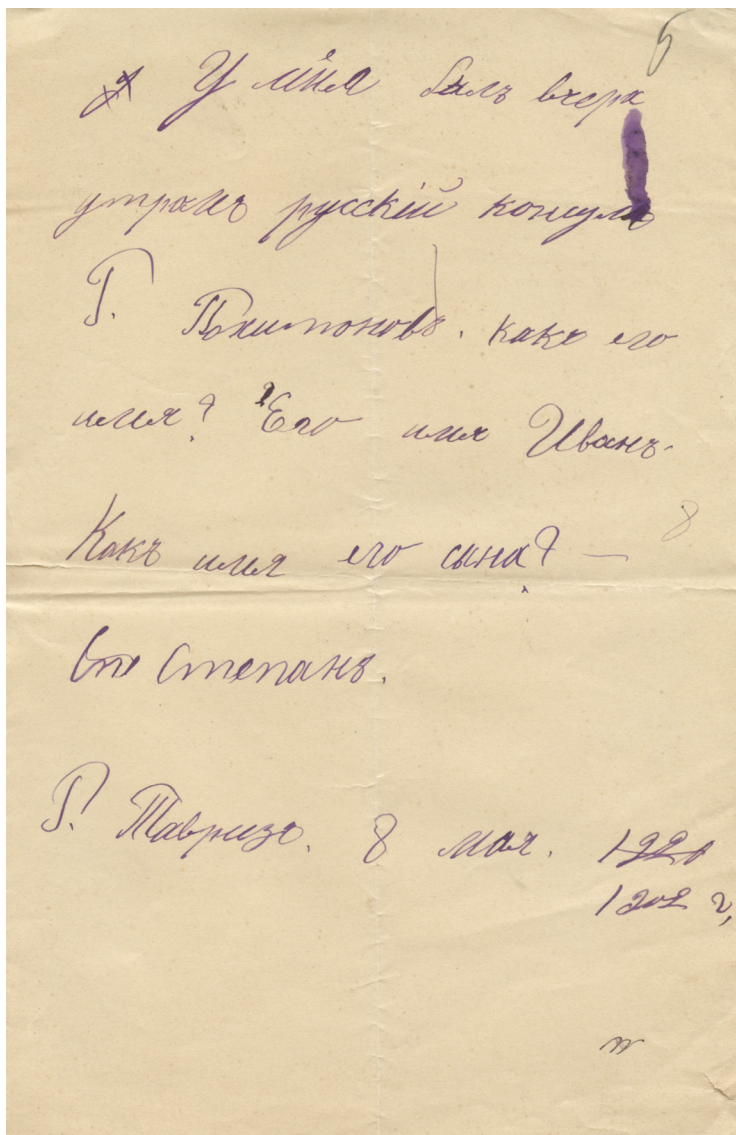 У меня былъ вчера
утромъ русскій консулъ
Г. Похитоновъ. какъ его
имя? Его имя Иванъ.
Какъ имя его сына? —
Степанъ.
Г. Тавризъ. 8 мая.
1902 г,